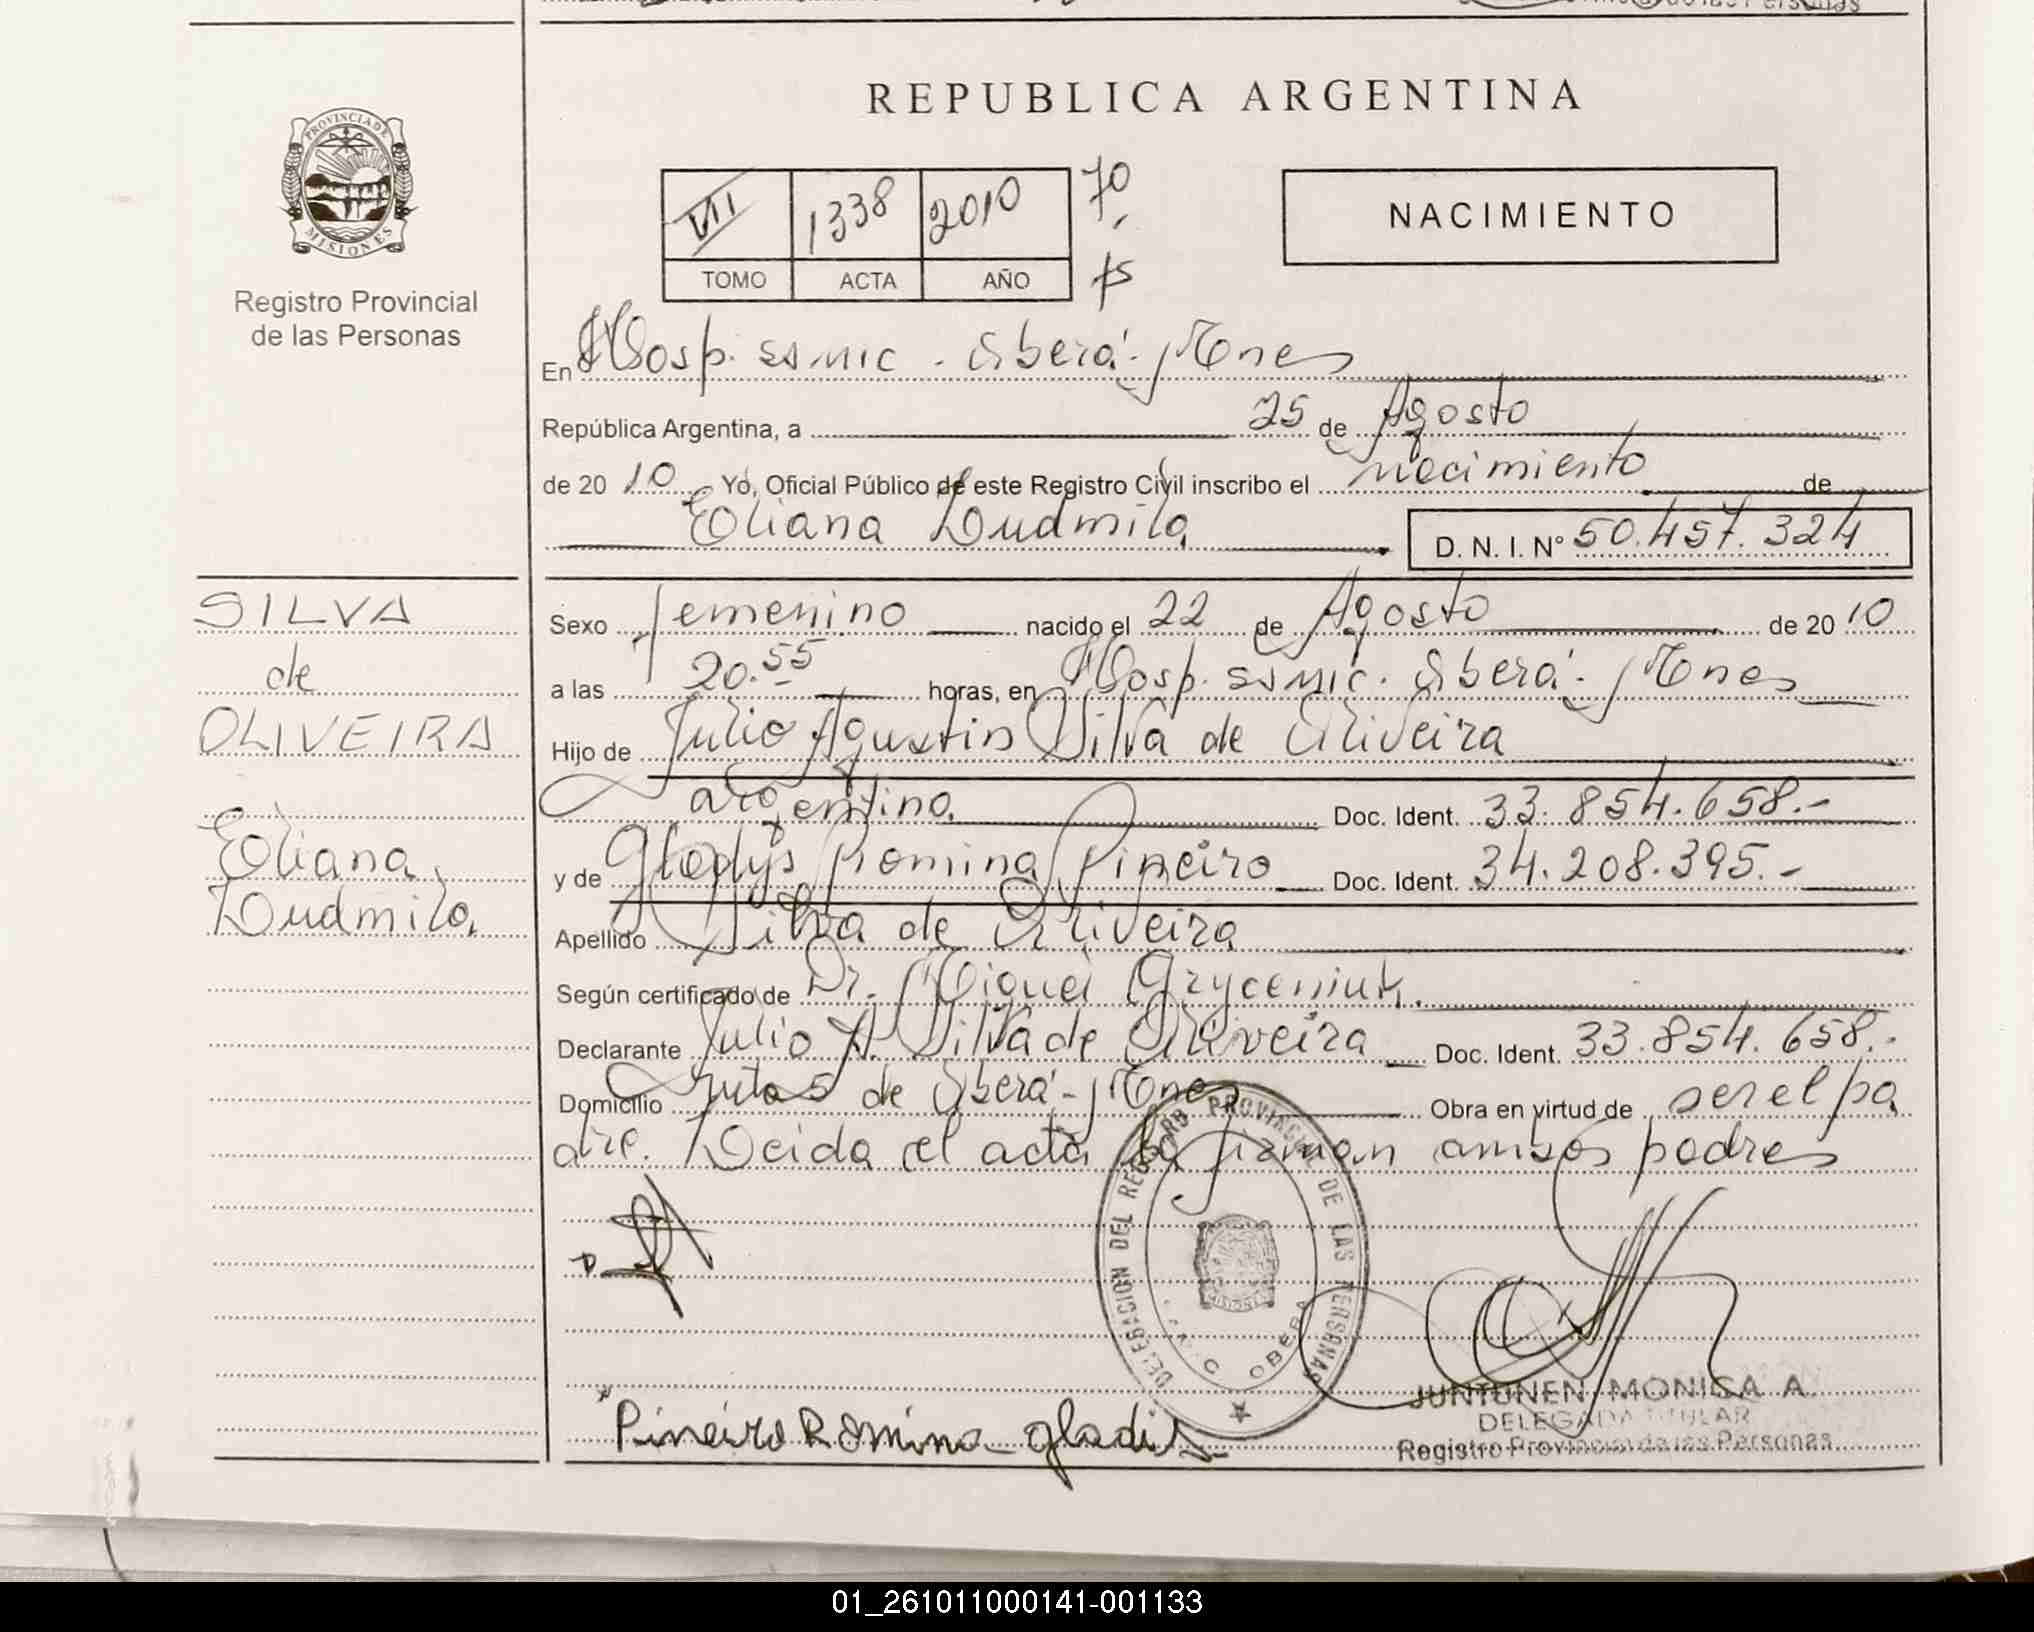 REPUBLICA ARGENTINA
PROVINCIA DE
MISIONES
Registro Provincial
de las Personas
VII 1338 2010 70
TOMO ACTA AÑO
NACIMIENTO
En Hosp. ssmic. Oberá. Mnes
República Argentina, a 25 de Agosto
de 2010 Yo, Oficial Público de este Registro Civil inscribo el nacimiento de
Eliana Ludmila D. N. I. N° 50.457.324
SILVA
de
OLIVEIRA
Eliana
Ludmila
Sexo femenino nacido el 22 de Agosto de 2010
a las 20.55 horas, en Hosp. ssmic. Oberá. Mnes
Hijo de Julio Agustin Silva de Oliveira
argentino Doc. Ident. 33.854.658.-
y de Gladys Romina Pineiro Doc. Ident. 34.208.395.-
Apellido Silva de Oliveira
Según certificado de Dr. Miguel Gryceniuk.
Declarante Julio A. Silva de Oliveira Doc. Ident. 33.854.658.-
Domicilio Ruta 5 de Oberá - Mnes Obra en virtud de ser el pa
dre. Leida el acta la firman ambos padres
DELEGACION DEL REGISTRO PROVINCIAL DE LAS PERSONAS
OBERA
MISIONES
Pineiro Romina gladis
JUNTUNEN MONICA A.
DELEGADA TITULAR
Registro Provincial de las Personas
01_261011000141-001133